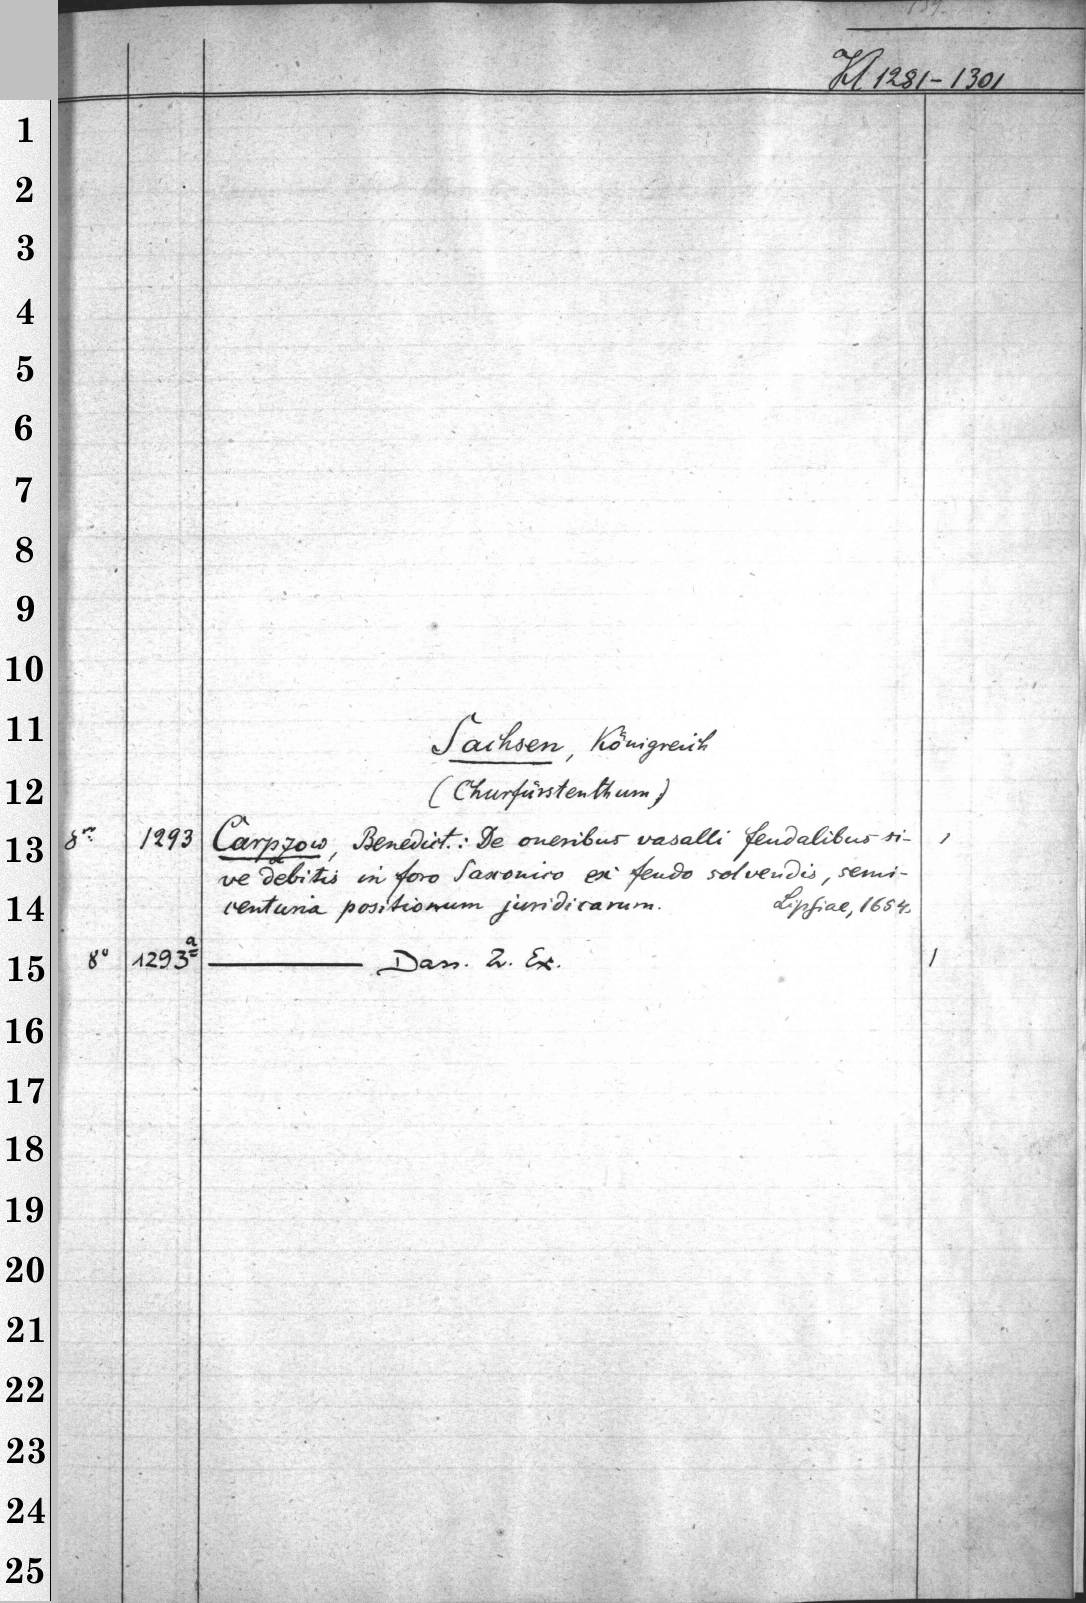 139.
Kl 1281-1301
1
2
3
4
5
6
7
8
9
10
11
Sachsen, Königreich
12
(Churfürstenthum)
13
8° 1293 Carpzow, Benedict.: De oneribus vasalli feudalibus si- 1
ve debitis in foro Saxonico ex feudo solvendis, semi-
14
centuria positionum juridicarum. Lipsiae, 1654.
15
8° 1293a Dass. 2. Ex. 1
16
17
18
19
20
21
22
23
24
25